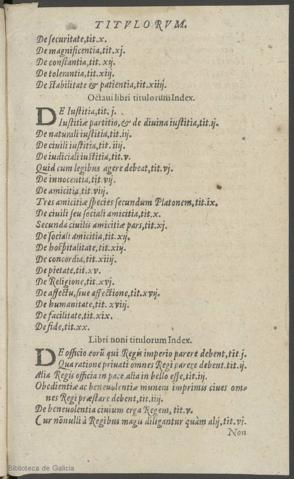 TITVLORVM.
De securitate, tit. x.
De magnificentia, tit. xj.
De constantia, tit. xij.
De tolerantia, tit. xiij.
De stabilitate & patientia, tit. xiiij.
Octaui libri titulorum Index.
DE Iustitia, tit. j.
Iustitiæ partitio, & de diuina iustitia, tit. ij.
De naturali iustitia, tit. iij.
De ciuili iustitia, tit. iiij.
De iudiciali iustitia, tit. v.
Quid cum legibus agere debeat, tit. vj.
De innocentia, tit. vij.
De amicitia, tit. viij.
Tres amicitiæ species secundum Platonem, tit. ix.
De ciuili seu sociali amicitia, tit. x.
Secunda ciuilis amicitiæ pars, tit. xj.
De sociali amicitia, tit. xij.
De hospitalitate, tit. xiij.
De concordia, tit. xiiij.
De pietate, tit. xv.
De Religione, tit. xvj.
De affectu, siue affectione, tit. xvij.
De humanitate, tit. xviij.
De facilitate, tit. xix.
De fide, tit. xx.
Libri noni titulorum Index.
DE officio eorũ qui Regis imperio parere debent, tit. j.
Qua ratione priuati omnes Regi parere debent. tit. ij.
Alia Regis officia in pace alia in bello esse, tit. iij.
Obedientiæ ac beneuolentiæ munera inprimis ciues om-
nes Regi præstare debent, tit. iiij.
De beneuolentia ciuium erga Regem, tit. v.
Cur nõnulli à Regibus magis diligantur quàm alij, tit. vj.
Non
Biblioteca de Galicia